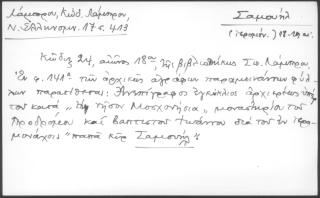 Λάμπρου, Κώδ. Λάμπρου,
Ν. Ἑλληνομν. 17 σ. 413
Σαμουήλ
(ἱερομόν.) 18-19 αἰ.
Κῶδιξ 24, αἰῶνος 18ου, τῆς βιβλιοθήκης Σπ. Λάμπρου.
Ἐν φ. 141α τῶν ἀρχικῶς ἀγράφων παραμεινάντων φύλ-
λων παρατίθεται: Ἀνυπόγραφος ἐγκύκλιος ἀρχιερέως
τοῦ κατὰ "τὴν νῆσον Μοσχονήσια" μοναστηρίου τοῦ
Προδρόμου καὶ Βαπτιστοῦ Ἰωάννου διὰ τοῦ ἐν ἱερο-
μονάχοις "παπᾶ κὺρ Σαμουήλ"